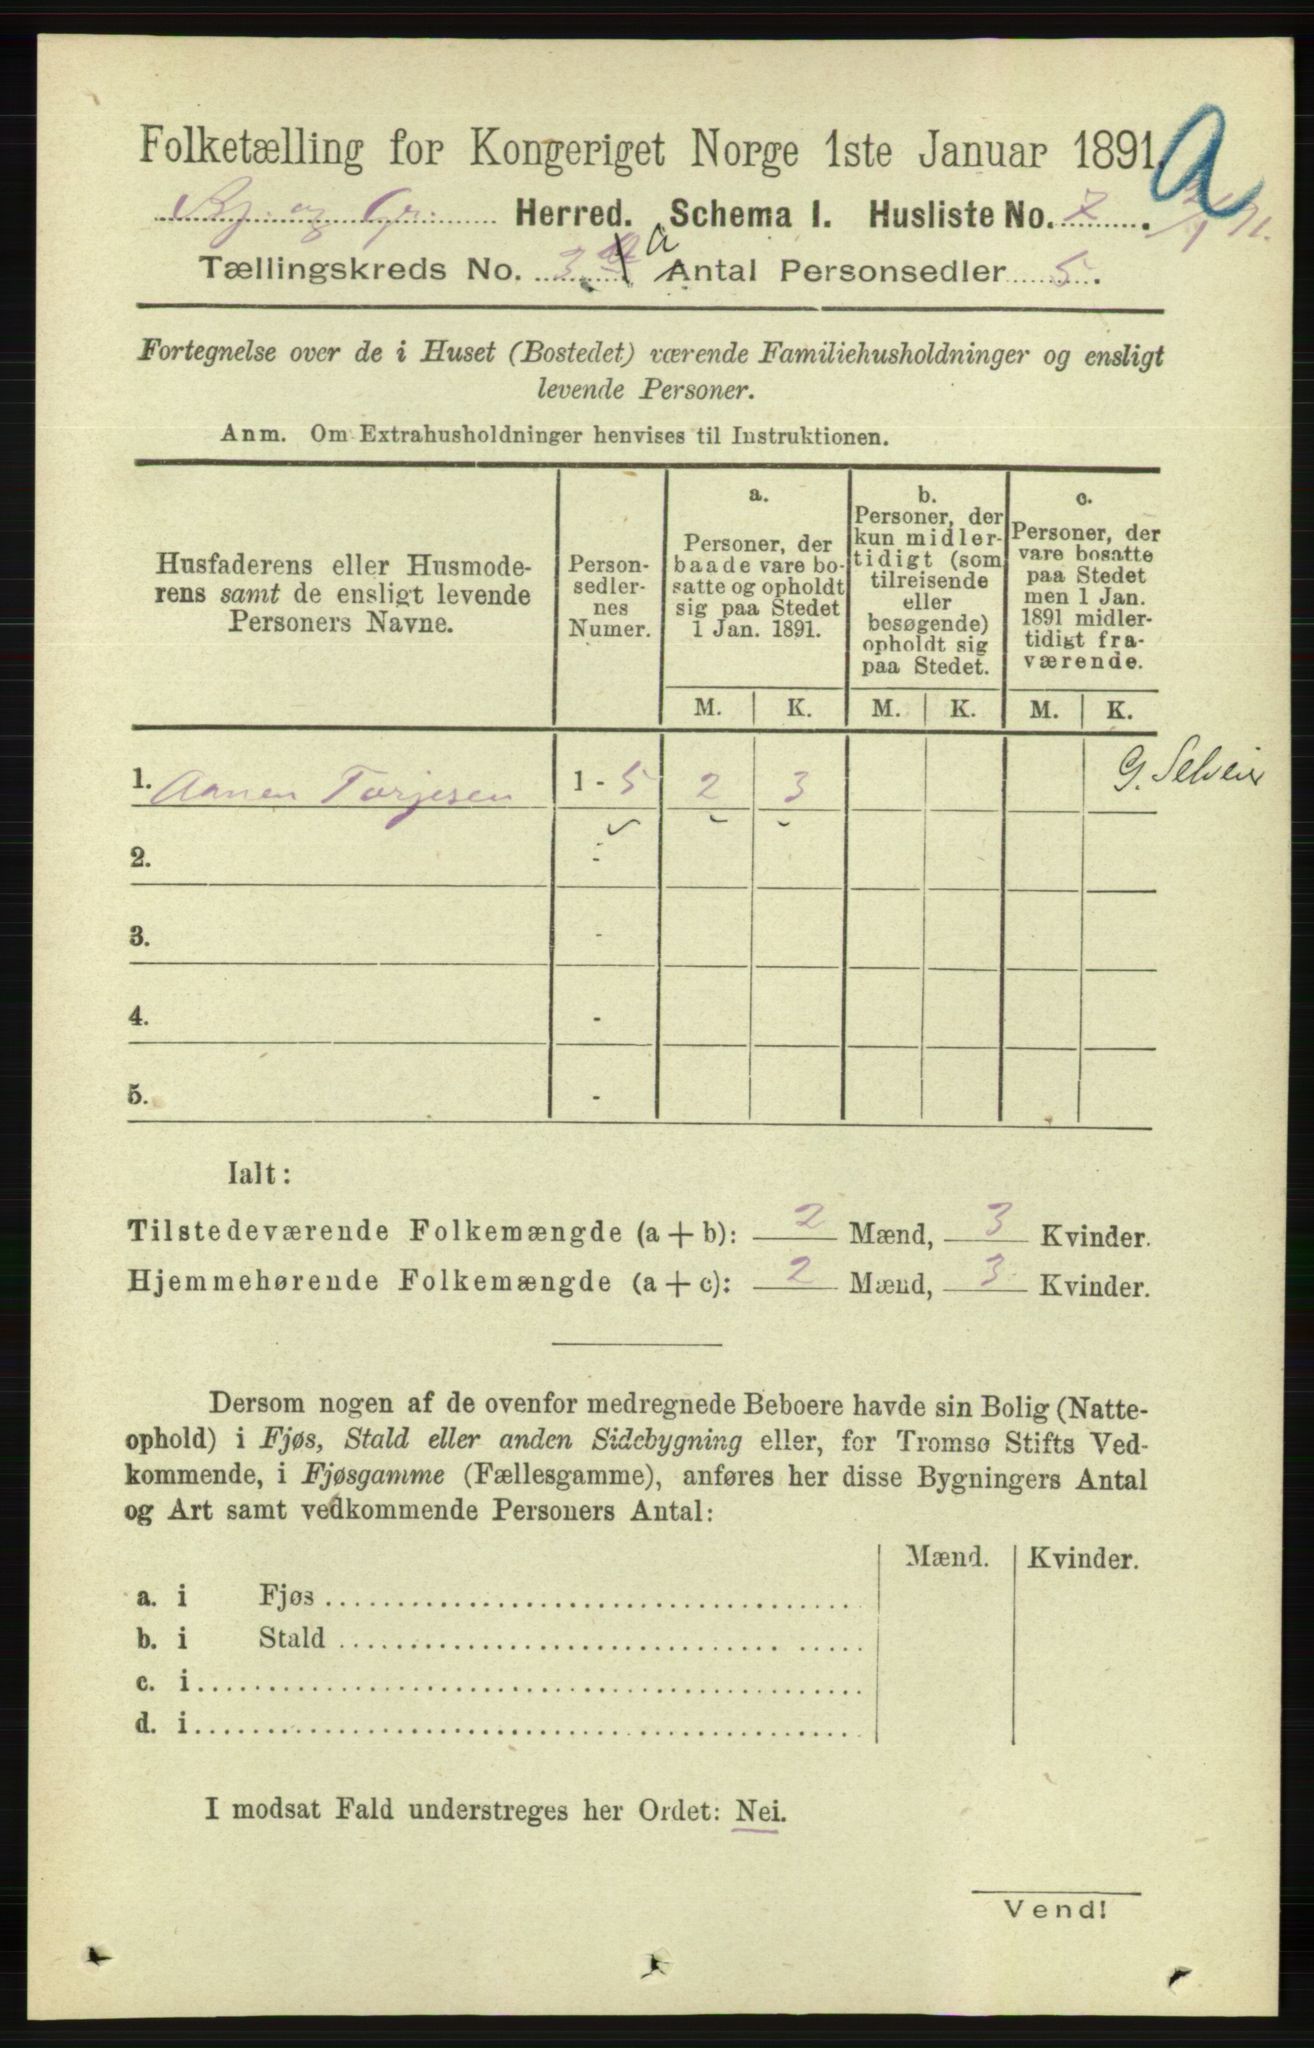 Folketælling for Kongeriget Norge 1ste Januar 1891.
A
Bj. og Gr. Herred. Schema I. Husliste No. 7.
Tællingskreds No. 3 a Antal Personsedler 5.
Fortegnelse over de i Huset (Bostedet) værende Familiehusholdninger og ensligt
levende Personer.
Anm. Om Extrahusholdninger henvises til Instruktionen.
Husfaderens eller Husmode-
rens samt de ensligt levende
Personers Navne.
Person-
sedler-
nes
Numer.
a.
Personer, der
baade vare bo-
satte og opholdt
sig paa Stedet
1 Jan. 1891.
b.
Personer, der
kun midler-
tidigt (som
tilreisende
eller
besøgende)
opholdt sig
paa Stedet.
c.
Personer, der
vare bosatte
paa Stedet
men 1 Jan.
1891 midler-
tidigt fra-
værende.
M. K. M. K. M. K.
1. Aanen Torjesen 1 - 5 2 3 G. Selveier
2. -
3. -
4. -
5. -
Ialt:
Tilstedeværende Folkemængde (a + b): 2 Mænd, 3 Kvinder.
Hjemmehørende Folkemængde (a + c): 2 Mænd, 3 Kvinder.
Dersom nogen af de ovenfor medregnede Beboere havde sin Bolig (Natte-
ophold) i Fjøs, Stald eller anden Sidebygning eller, for Tromsø Stifts Ved-
kommende, i Fjøsgamme (Fællesgamme), anføres her disse Bygningers Antal
og Art samt vedkommende Personers Antal:
Mænd. Kvinder.
a. i Fjøs
b. i Stald
c. i
d. i
I modsat Fald understreges her Ordet: Nei.
Vend!